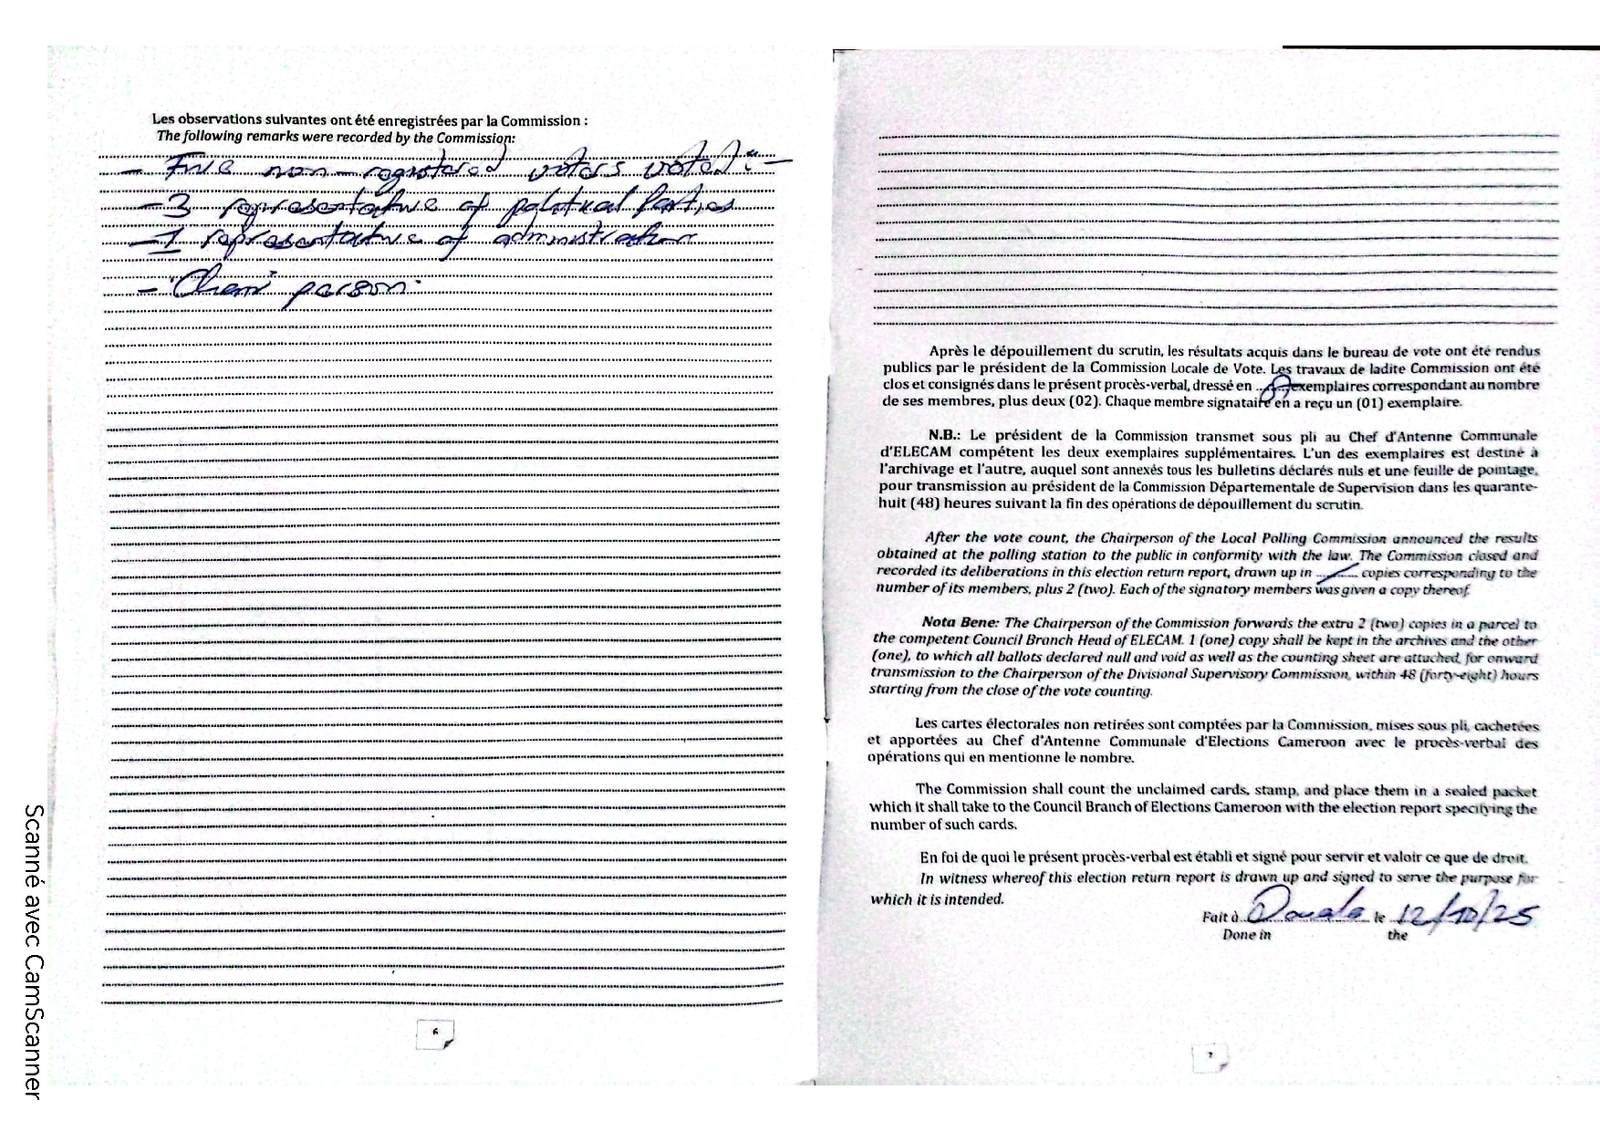 Les observations suivantes ont été enregistrées par la Commission :
The following remarks were recorded by the Commission:
- Five non-registered voters voted :-
- 3 representative of political parties
- 1 representative of administration
- Chair person.
6
Après le dépouillement du scrutin, les résultats acquis dans le bureau de vote ont été rendus
publics par le président de la Commission Locale de Vote. Les travaux de ladite Commission ont été
clos et consignés dans le présent procès-verbal, dressé en exemplaires correspondant au nombre
de ses membres, plus deux (02). Chaque membre signataire en a reçu un (01) exemplaire.
N.B.: Le président de la Commission transmet sous pli au Chef d'Antenne Communale
d'ELECAM compétent les deux exemplaires supplémentaires. L'un des exemplaires est destiné à
l'archivage et l'autre, auquel sont annexés tous les bulletins déclarés nuls et une feuille de pointage,
pour transmission au président de la Commission Départementale de Supervision dans les quarante-
huit (48) heures suivant la fin des opérations de dépouillement du scrutin.
After the vote count, the Chairperson of the Local Polling Commission announced the results
obtained at the polling station to the public in conformity with the law. The Commission closed and
recorded its deliberations in this election return report, drawn up in copies corresponding to the
number of its members, plus 2 (two). Each of the signatory members was given a copy thereof.
Nota Bene: The Chairperson of the Commission forwards the extra 2 (two) copies in a parcel to
the competent Council Branch Head of ELECAM. 1 (one) copy shall be kept in the archives and the other
(one), to which all ballots declared null and void as well as the counting sheet are attached, for onward
transmission to the Chairperson of the Divisional Supervisory Commission, within 48 (forty-eight) hours
starting from the close of the vote counting.
Les cartes électorales non retirées sont comptées par la Commission, mises sous pli, cachetées
et apportées au Chef d'Antenne Communale d'Elections Cameroon avec le procès-verbal des
opérations qui en mentionne le nombre.
The Commission shall count the unclaimed cards, stamp, and place them in a sealed packet
which it shall take to the Council Branch of Elections Cameroon with the election report specifying the
number of such cards.
En foi de quoi le présent procès-verbal est établi et signé pour servir et valoir ce que de droit.
In witness whereof this election return report is drawn up and signed to serve the purpose for
which it is intended.
Fait à Douala le 12/10/25
Done in the
7
Scanné avec CamScanner